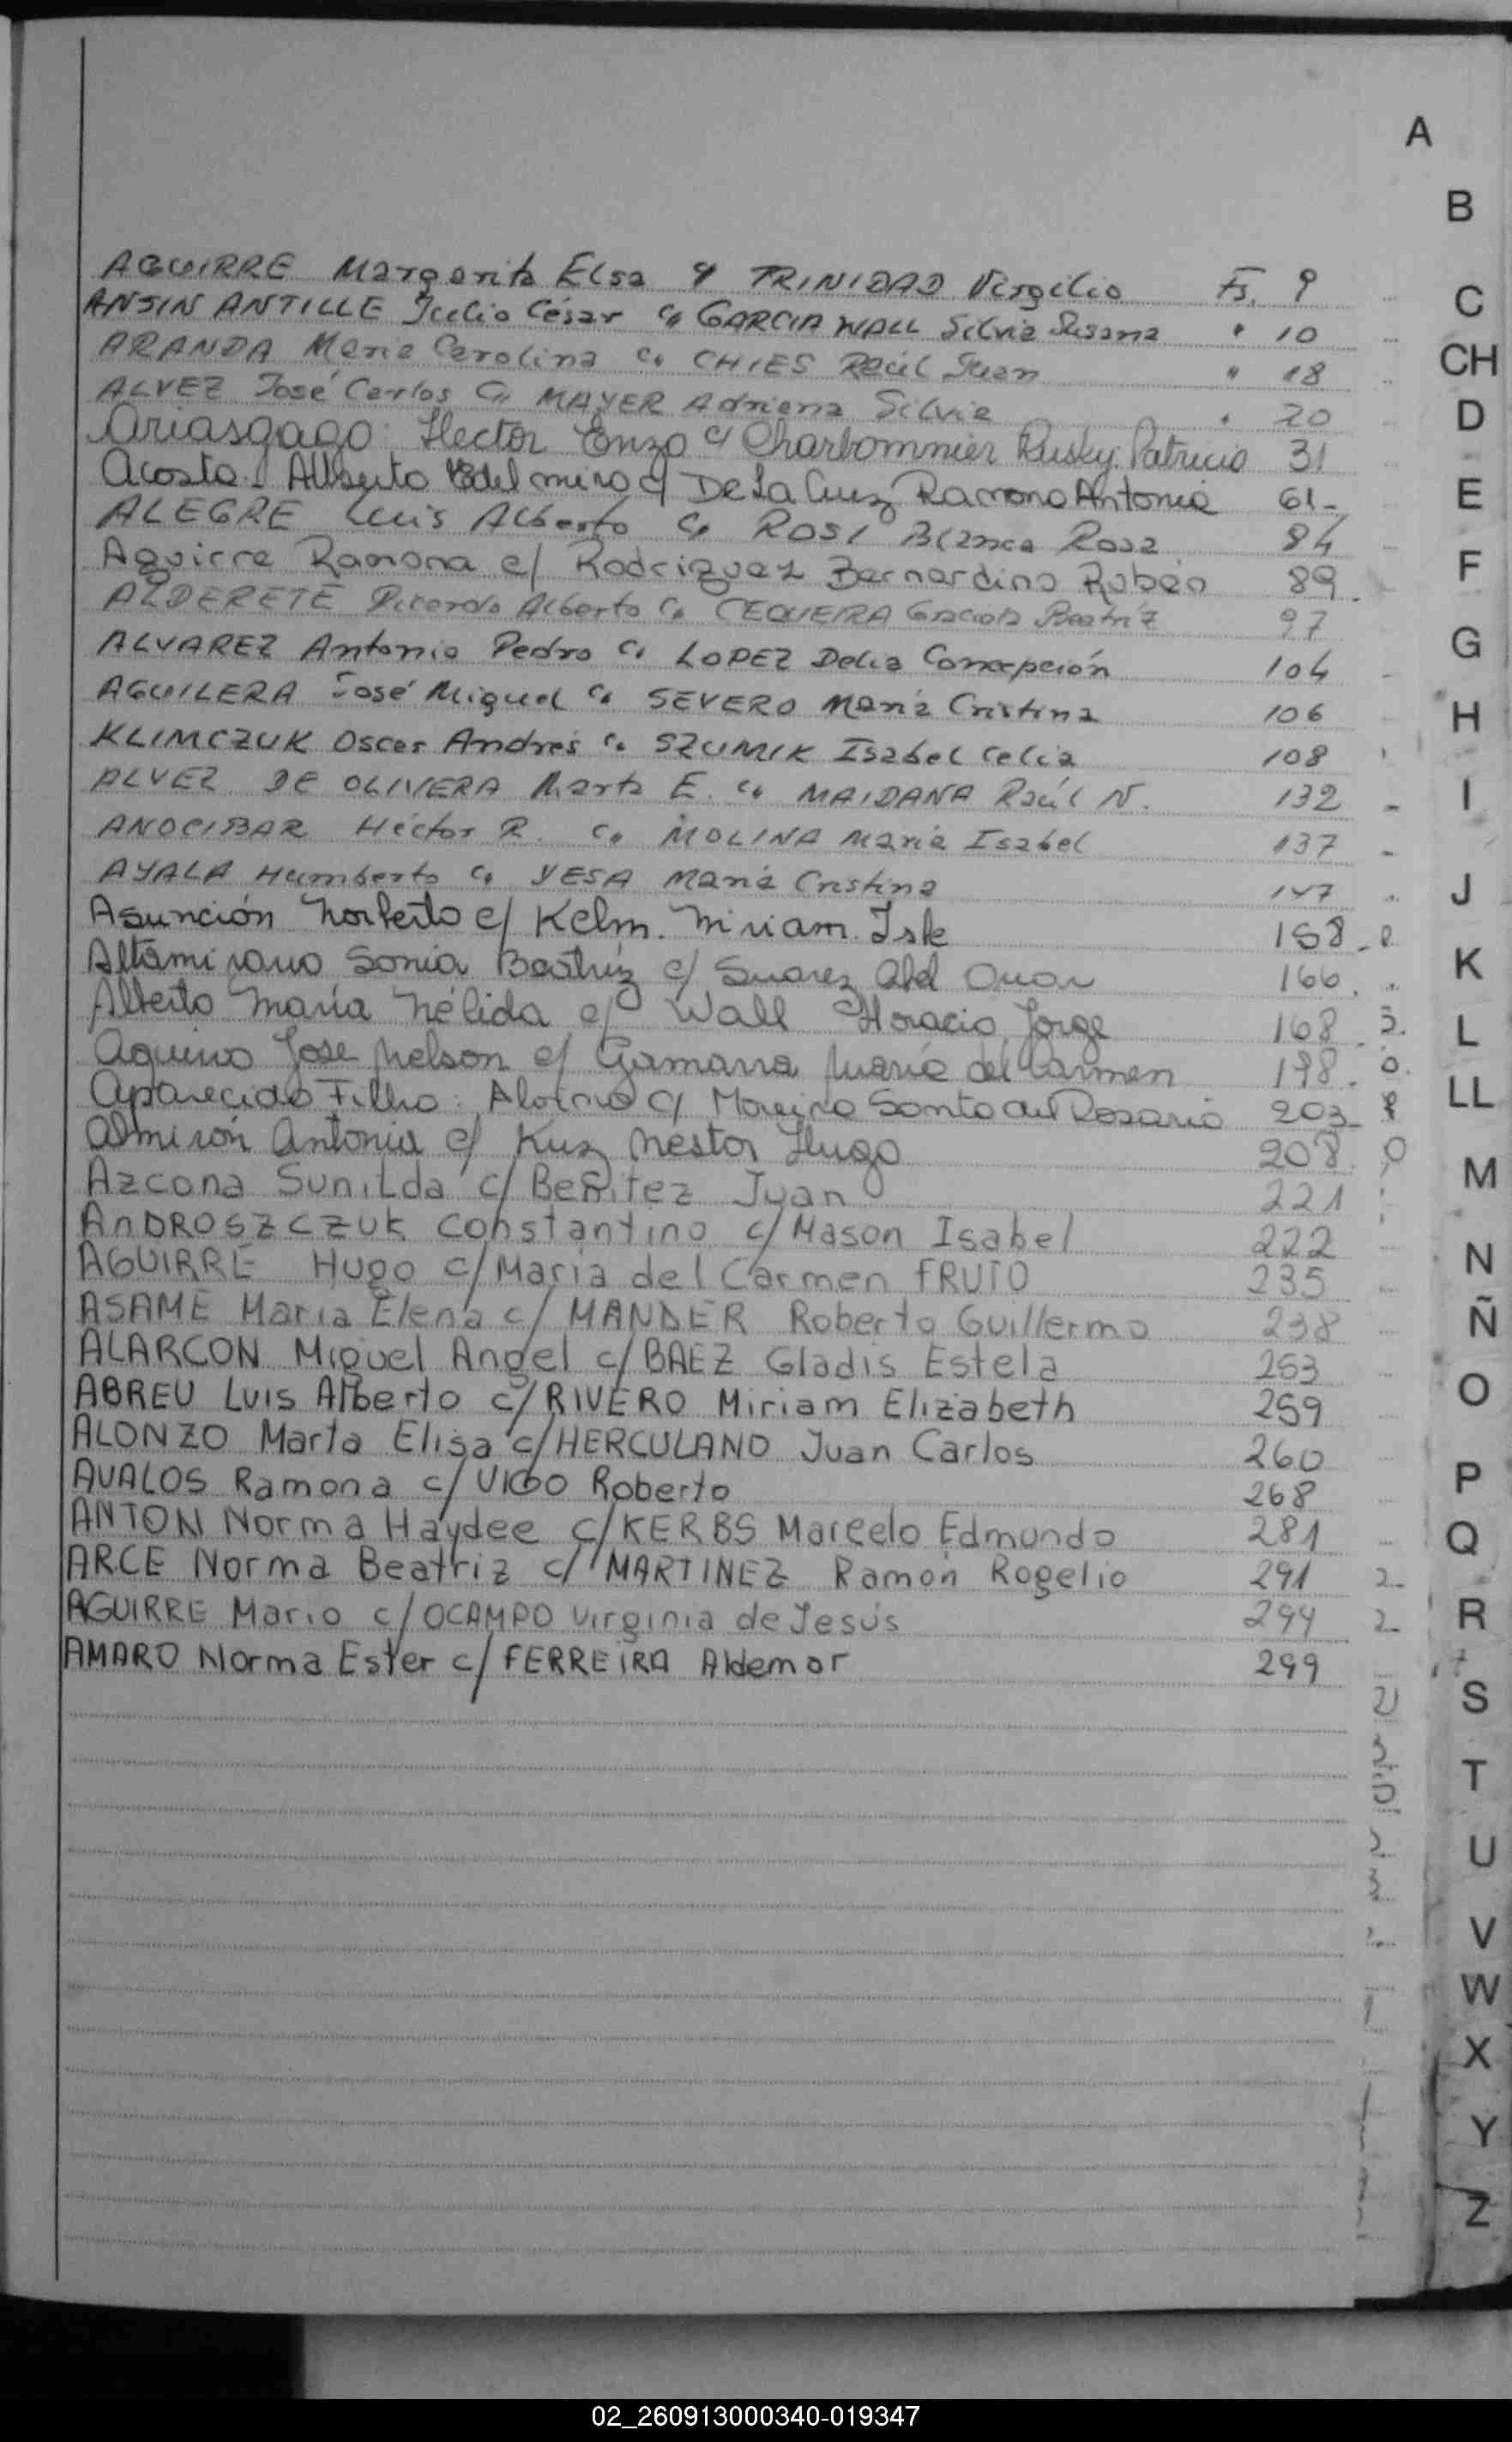 A
B
C
CH
D
E
F
G
H
I
J
K
L
LL
M
N
Ñ
O
P
Q
R
S
T
U
V
W
X
Y
Z
AGUIRRE Margarita Elsa c/ TRINIDAD Virgilio Fs. 9
ANSIN ANTILLE Julio César c/ GARCIA WALL Silvia Susana " 10
ARANDA Maria Carolina c/ CHIES Raúl Juan " 18
ALVEZ José Carlos c/ MAYER Adriana Silvia " 20
Ariasgago Hector Enzo c/ Charbommier Rusky Patricia 31
Acosta Alberto Edelmiro c/ De La Cruz Ramona Antonia 61-
ALEGRE Luis Alberto c/ ROSI Blanca Rosa 84
Aguirre Ramona c/ Rodriguez Bernardino Rubén 89
ALDERETE Ricardo Alberto c/ CEQUEIRA Graciela Beatríz 97
ALVAREZ Antonio Pedro c/ LOPEZ Delia Concepción 104
AGUILERA José Miguel c/ SEVERO María Cristina 106
KLIMCZUK Oscar Andrés c/ SZUMIK Isabel Celia 108
ALVEZ DE OLIVERA Marta E. c/ MAIDANA Raúl N. 132
ANOCIBAR Héctor R. c/ MOLINA María Isabel 137
AYALA Humberto c/ YESA María Cristina 147
Asunción Norberto c/ Kelm. Miriam 158
Altamirano Sonia Beatríz c/ Suarez Abel Omar 166
Alberto María Nélida c/ Wall Horacio Jorge 168
Aquino Jose Nelson c/ Gamarra María del Carmen 198
Aparecido Filho c/ Moreira Santo do Rosario 203
Almirón Antonia c/ Kuz Nestor Hugo 208
Azcona Sunilda c/ Benitez Juan 221
ANDROSZCZUK Constantino c/ Mason Isabel 222
AGUIRRE Hugo c/ Maria del Carmen FRUTO 235
ASAME Maria Elena c/ MANDER Roberto Guillermo 238
ALARCON Miguel Angel c/ BAEZ Gladis Estela 253
ABREU Luis Alberto c/ RIVERO Miriam Elizabeth 259
ALONZO Marta Elisa c/ HERCULANO Juan Carlos 260
AVALOS Ramona c/ VIGO Roberto 268
ANTON Norma Haydee c/ KERBS Marcelo Edmundo 281
ARCE Norma Beatriz c/ MARTINEZ Ramón Rogelio 291
AGUIRRE Mario c/ OCAMPO Virginia de Jesús 294
AMARO Norma Ester c/ FERREIRA Aldemar 299
02_260913000340-019347